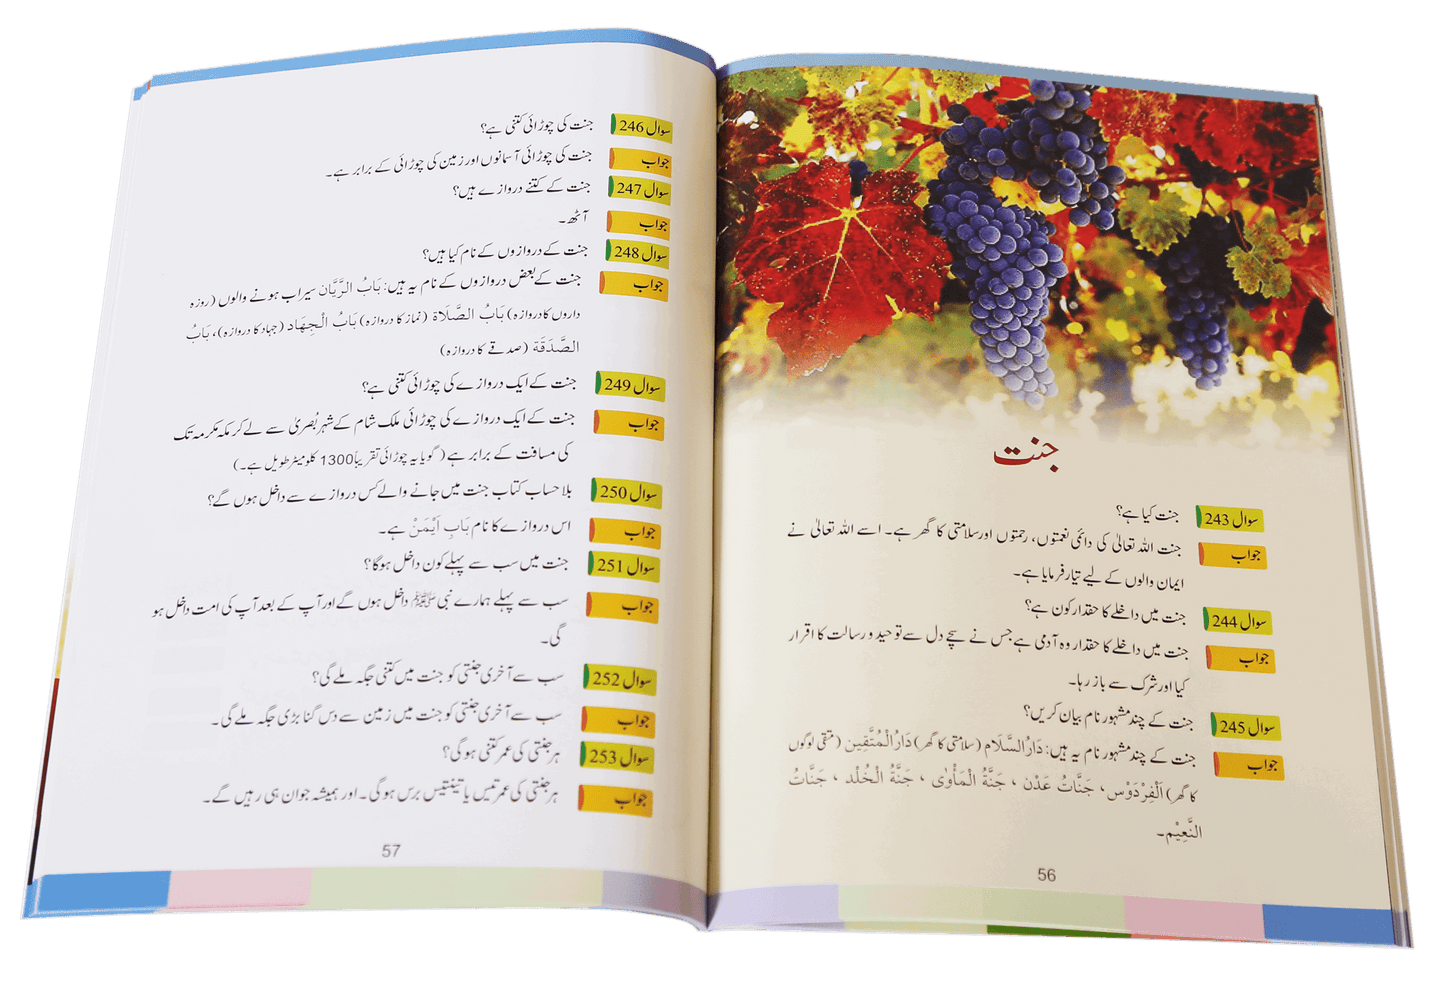 جنت
سوال 243 جنت کیا ہے؟
جواب جنت اللہ تعالیٰ کی دائمی نعمتوں، رحمتوں اور سلامتی کا گھر ہے۔ اسے اللہ تعالیٰ نے
ایمان والوں کے لیے تیار فرمایا ہے۔
سوال 244 جنت میں داخلے کا حقدار کون ہے؟
جواب جنت میں داخلے کا حقدار وہ آدمی ہے جس نے سچے دل سے توحید و رسالت کا اقرار
کیا اور شرک سے باز رہا۔
سوال 245 جنت کے چند مشہور نام بیان کریں؟
جواب جنت کے چند مشہور نام یہ ہیں: دَارُ السَّلَام (سلامتی کا گھر) دَارُ الْمُتَّقِین (متقی لوگوں
کا گھر) اَلْفِرْدَوْس، جَنَّاتُ عَدْن، جَنَّةُ الْمَأْوٰی، جَنَّةُ الْخُلْد، جَنَّاتُ
النَّعِیْم۔
56
سوال 246 جنت کی چوڑائی کتنی ہے؟
جواب جنت کی چوڑائی آسمانوں اور زمین کی چوڑائی کے برابر ہے۔
سوال 247 جنت کے کتنے دروازے ہیں؟
جواب آٹھ۔
سوال 248 جنت کے دروازوں کے نام کیا ہیں؟
جواب جنت کے بعض دروازوں کے نام یہ ہیں: بَابُ الرَّیَّان سیراب ہونے والوں (روزہ
داروں کا دروازہ) بَابُ الصَّلَاة (نماز کا دروازہ) بَابُ الْجِهَاد (جہاد کا دروازہ)، بَابُ
الصَّدَقَة (صدقے کا دروازہ)
سوال 249 جنت کے ایک دروازے کی چوڑائی کتنی ہے؟
جواب جنت کے ایک دروازے کی چوڑائی ملک شام کے شہر بُصریٰ سے لے کر مکہ مکرمہ تک
کی مسافت کے برابر ہے (گویا یہ چوڑائی تقریباً 1300 کلومیٹر طویل ہے۔)
سوال 250 بلا حساب کتاب جنت میں جانے والے کس دروازے سے داخل ہوں گے؟
جواب اس دروازے کا نام بَابِ اَیْمَنْ ہے۔
سوال 251 جنت میں سب سے پہلے کون داخل ہوگا؟
جواب سب سے پہلے ہمارے نبی ﷺ داخل ہوں گے اور آپ کے بعد آپ کی امت داخل ہو
گی۔
سوال 252 سب سے آخری جنتی کو جنت میں کتنی جگہ ملے گی؟
جواب سب سے آخری جنتی کو جنت میں زمین سے دس گنا بڑی جگہ ملے گی۔
سوال 253 ہر جنتی کی عمر کتنی ہوگی؟
جواب ہر جنتی کی عمر تیس یا تینتیس برس ہوگی۔ اور ہمیشہ جوان ہی رہیں گے۔
57